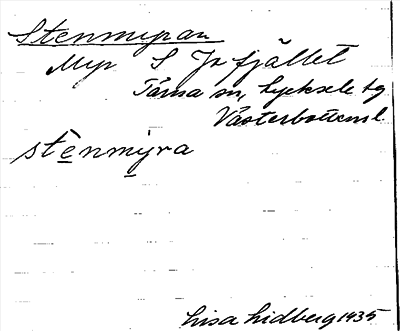 Stenmyran
Myr S Jofjället
Tärna sn, Lycksele tg
Västerbottens l.
stenmyra
Lisa Lidberg 1935